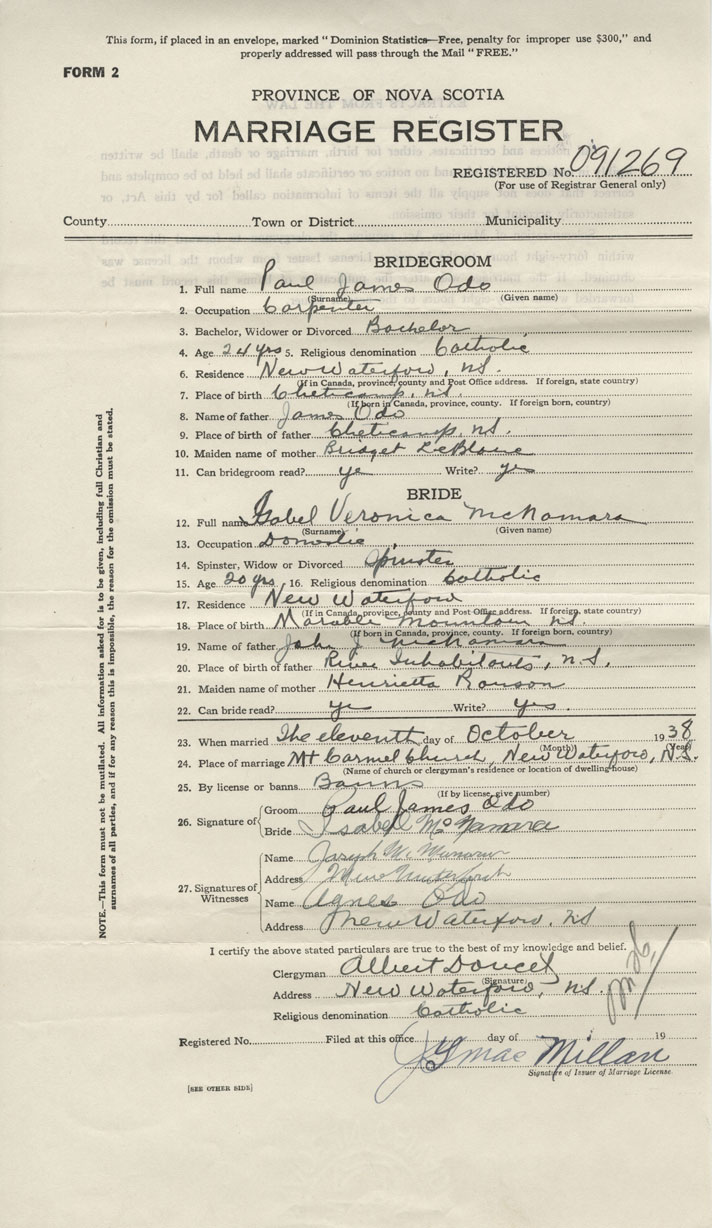 This form, if placed in an envelope, marked "Dominion Statistics—Free, penalty for improper use $300," and
properly addressed will pass through the Mail "FREE."
FORM 2
PROVINCE OF NOVA SCOTIA
MARRIAGE REGISTER
REGISTERED No. 091269
(For use of Registrar General only)
County Town or District Municipality
BRIDEGROOM
1. Full name Paul James Odo
(Surname) (Given name)
2. Occupation Carpenter
3. Bachelor, Widower or Divorced Bachelor
4. Age 24 yrs 5. Religious denomination Catholic
6. Residence New Waterford, n.s.
(If in Canada, province, county and Post Office address. If foreign, state country)
7. Place of birth Cheticamp, n.s.
(If born in Canada, province, county. If foreign born, country)
8. Name of father James Odo
9. Place of birth of father Cheticamp, n.s.
10. Maiden name of mother Bridget LeBlanc
11. Can bridegroom read? yes Write? yes
BRIDE
12. Full name Isabel Veronica McNamara
(Surname) (Given name)
13. Occupation Domestic
14. Spinster, Widow or Divorced Spinster
15. Age 20 yrs, 16. Religious denomination Catholic
17. Residence New Waterford
(If in Canada, province, county and Post Office address. If foreign, state country)
18. Place of birth Marable Mountain n.s.
(If born in Canada, province, county. If foreign born, country)
19. Name of father John J. McNamara
20. Place of birth of father River Inhabitants, n.s.
21. Maiden name of mother Henrietta Ronson
22. Can bride read? yes Write? yes.
23. When married The eleventh day of October 1938
(Month) (Year)
24. Place of marriage Mt Carmel Church, New Waterford, N.S.
(Name of church or clergyman's residence or location of dwelling house)
25. By license or banns Banns
(If by license, give number)
26. Signature of Groom Paul James Odo
Bride Isabel McNamara
27. Signatures of Witnesses
Name Joseph
Address
Name Agnes Odo
Address New Waterford, NS
I certify the above stated particulars are true to the best of my knowledge and belief.
Clergyman Albert Doucet
(Signature)
Address New Waterford, n.s.
Religious denomination Catholic
Registered No. Filed at this office day of 19
J G MacMillan
Signature of Issuer of Marriage License.
[SEE OTHER SIDE]
NOTE.—This form must not be mutilated. All information asked for is to be given, including full Christian and
surnames of all parties, and if for any reason this is impossible, the reason for the omission must be stated.